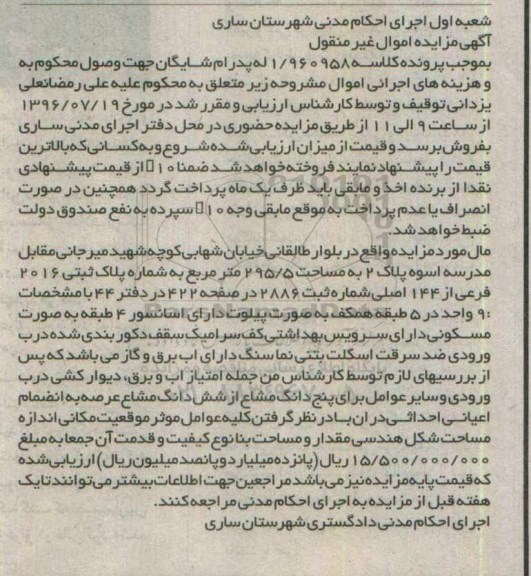 شعبه اول اجرای احکام مدنی شهرستان ساری
آگهی مزایده اموال غیر منقول
بموجب پرونده کلاسه ۱/۹۶۰۹۵۸ له پدرام شایگان جهت وصول محکوم به
و هزینه های اجرائی اموال مشروحه زیر متعلق به محکوم علیه علی رمضانعلی
یزدانی توقیف و توسط کارشناس ارزیابی و مقرر شد در مورخ ۱۳۹۶/۰۷/۱۹
از ساعت ۹ الی ۱۱ از طریق مزایده حضوری در محل دفتر اجرای مدنی ساری
بفروش برسد و قیمت از میزان ارزیابی شده شروع و به کسانی که بالاترین
قیمت را پیشنهاد نمایند فروخته خواهد شد ضمنا ۱۰٪ از قیمت پیشنهادی
نقدا از برنده اخذ و مابقی باید ظرف یک ماه پرداخت گردد همچنین در صورت
انصراف یا عدم پرداخت به موقع مابقی وجه ۱۰٪ سپرده به نفع صندوق دولت
ضبط خواهد شد.
مال مورد مزایده واقع در بلوار طالقانی خیابان شهابی کوچه شهید میرجانی مقابل
مدرسه اسوه پلاک ۲ به مساحت ۲۹۵/۵ متر مربع به شماره پلاک ثبتی ۲۰۱۶
فرعی از ۱۴۴ اصلی شماره ثبت ۲۸۸۶ در صفحه ۴۲۲ در دفتر ۴۴ با مشخصات
:۹ واحد در ۵ طبقه همکف به صورت پیلوت دارای اسانسور ۴ طبقه به صورت
مسکونی دارای سرویس بهداشتی کف سرامیک سقف دکور بندی شده درب
ورودی ضد سرقت اسکلت بتنی نما سنگ دارای اب برق و گاز می باشد که پس
از بررسیهای لازم توسط کارشناس من جمله امتیاز اب و برق، دیوار کشی درب
ورودی و سایر عوامل برای پنج دانگ مشاع از شش دانگ مشاع عرصه به انضمام
اعیانی احداثی در ان با در نظر گرفتن کلیه عوامل موثر موقعیت مکانی اندازه
مساحت شکل هندسی مقدار و مساحت بنا نوع کیفیت و قدمت آن جمعا به مبلغ
۱۵/۵۰۰/۰۰۰/۰۰۰ ریال (پانزده میلیارد و پانصد میلیون ریال) ارزیابی شده
که قیمت پایه مزایده نیز می باشد مراجعین جهت اطلاعات بیشتر می توانند تا یک
هفته قبل از مزایده به اجرای احکام مدنی مراجعه کنند.
اجرای احکام مدنی دادگستری شهرستان ساری